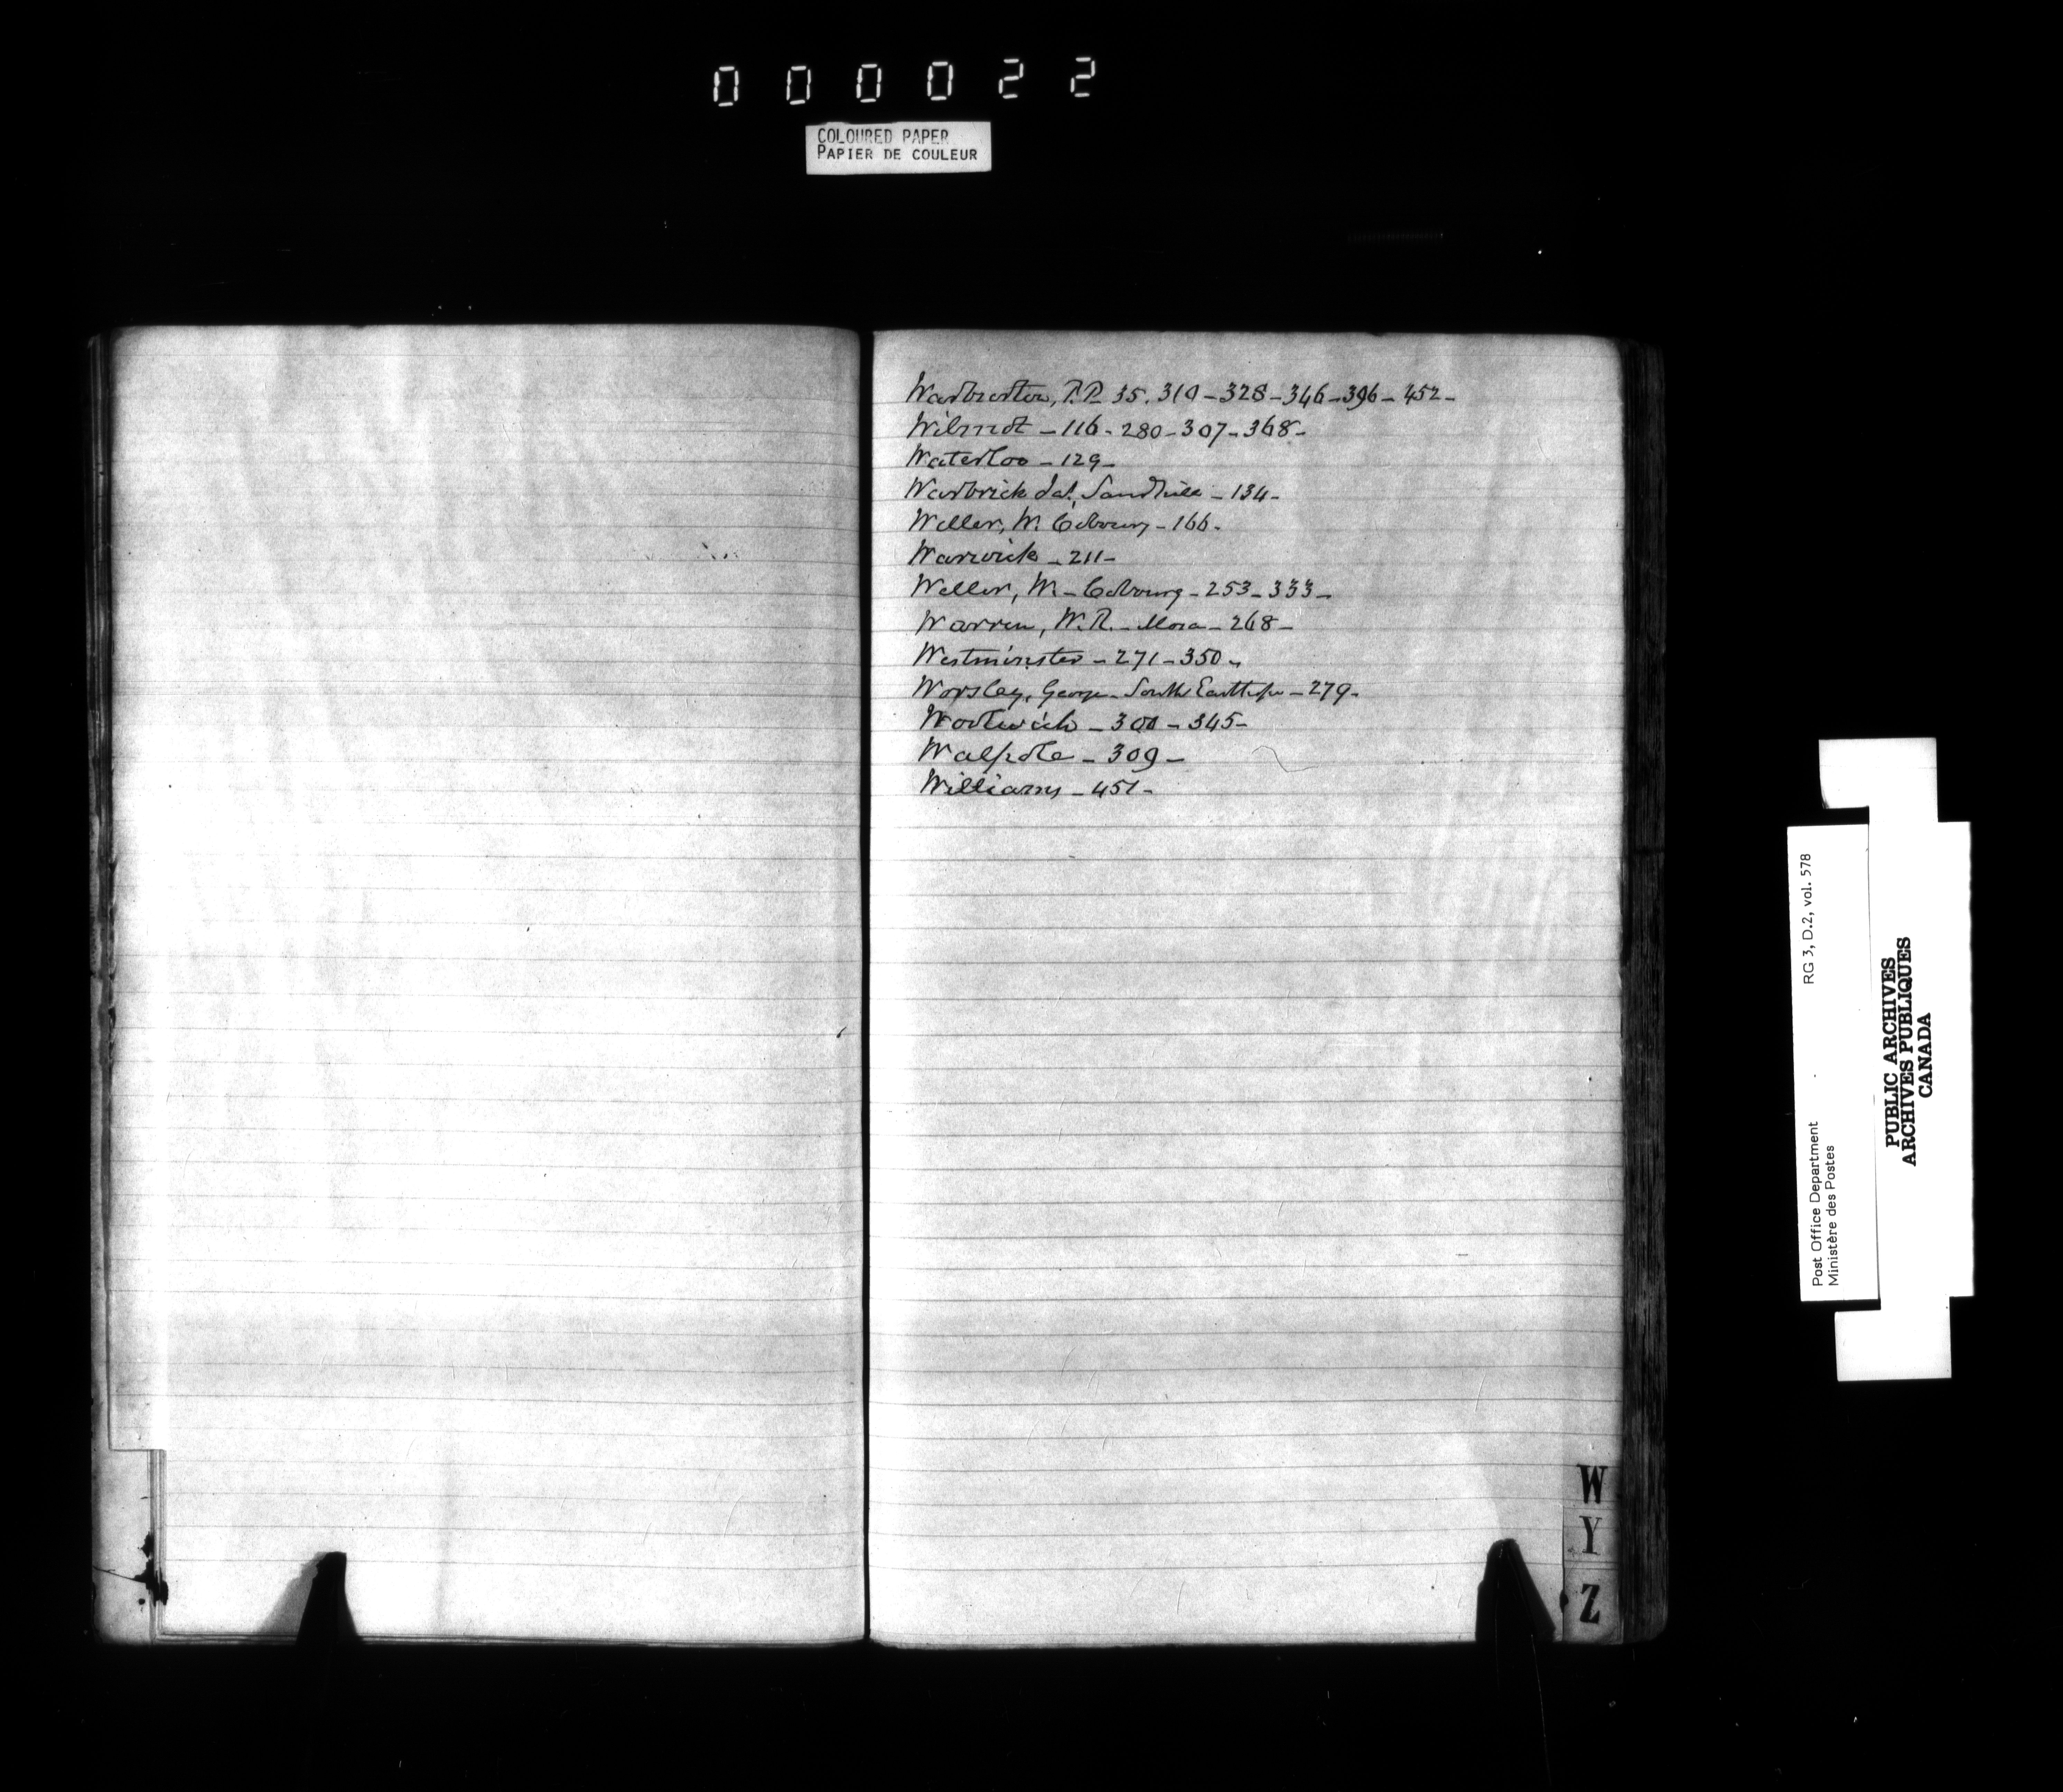 000022
COLOURED PAPER
PAPIER DE COULEUR
Warburton, P.P. 35. 310 - 328 - 346 - 396 - 452 -
Wilmot - 116 - 280 - 307 - 368 -
Waterloo - 129 -
Warbrick Jas. Sandhill - 134 -
Weller, W. Cobourg - 166 -
Warwick - 211 -
Weller, W. - Cobourg - 253 - 333 -
Warren, W.R. - Mosa - 268 -
Westminster - 271 - 350 -
Worsley, George - South Easthope - 279 -
Woolwich - 300 - 345 -
Walpole - 309 -
Williams - 451 -
W
Y
Z
Post Office Department RG 3, D.2, vol. 578
Ministère des Postes
PUBLIC ARCHIVES
ARCHIVES PUBLIQUES
CANADA